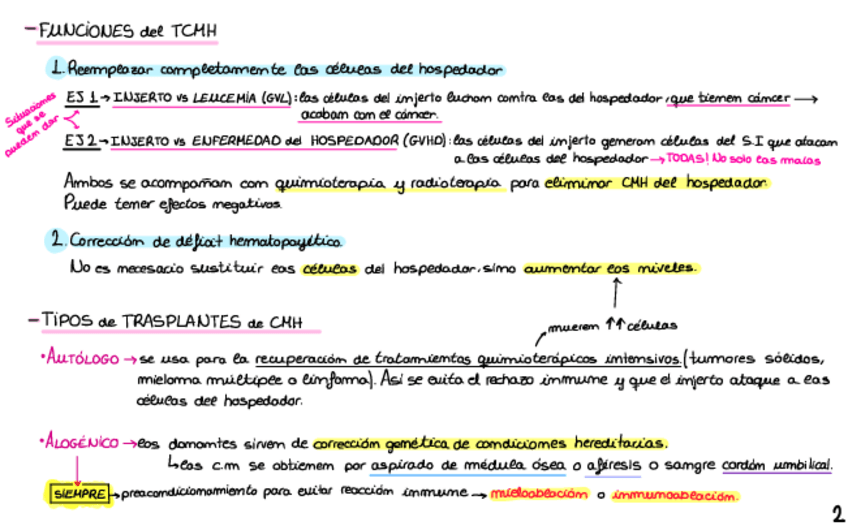 - FUNCIONES del TCMH
1. Reemplazar completamente las células del hospedador
Situaciones que se pueden dar
EJ 1 → INJERTO vs LEUCEMIA (GVL): las células del injerto luchan contra las del hospedador, que tienen cáncer →
acaban con el cáncer.
EJ 2 → INJERTO vs ENFERMEDAD del HOSPEDADOR (GVHD): las células del injerto generan células del S.I que atacan
a las células del hospedador → TODAS! No solo las malas
Ambos se acompañan con quimioterapia y radioterapia para eliminar CMH del hospedador.
Puede tener efectos negativos.
2. Corrección de déficit hematopoyético
No es necesario sustituir las células del hospedador, sino aumentar los niveles.
- TIPOS de TRASPLANTES de CMH
mueren ↑↑ células
• AUTÓLOGO → se usa para la recuperación de tratamientos quimioterápicos intensivos. (tumores sólidos,
mieloma múltiple o linfoma). Así se evita el rechazo inmune y que el injerto ataque a las
células del hospedador.
• ALOGÉNICO → los donantes sirven de corrección genética de condiciones hereditarias.
↳ las c.m se obtienen por aspirado de médula ósea o aféresis o sangre cordón umbilical.
SIEMPRE → preacondicionamiento para evitar reacción inmune → mieloablación o inmunoablación.
2